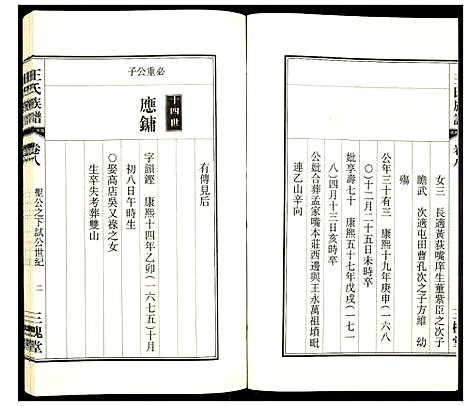 女三　長適黃荻嘴庠生董紫臣之次子
膽武　次適屯田曹孔次之子方維　幼
殤
公年三十有三　康熙十九年庚申(一六八
〇)十二月二十五日未時卒
妣享壽七十　康熙五十七年戊戌(一七一
八)四月十三日亥時卒
公妣合葬孟家嘴本莊西邊與王永萬祖墳毗
連乙山辛向
有傳見后
十四世
必重公子
應鏞
字韻鏗　康熙十四年乙卯(一六七五)十月
初八日午時生
〇娶高店吳又祿之女
生卒失考葬雙山
王氏族譜
卷八
聖公之下試公世紀
二
三槐堂